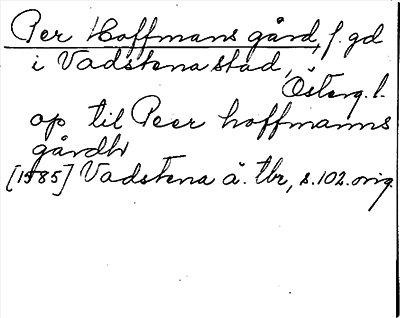 Per Hoffmans gård, f. gd
i Vadstena stad,
Österg. l.
op til Peer hoffmanns
gårdh
[1585] Vadstena ä. tbr, s. 102. orig.